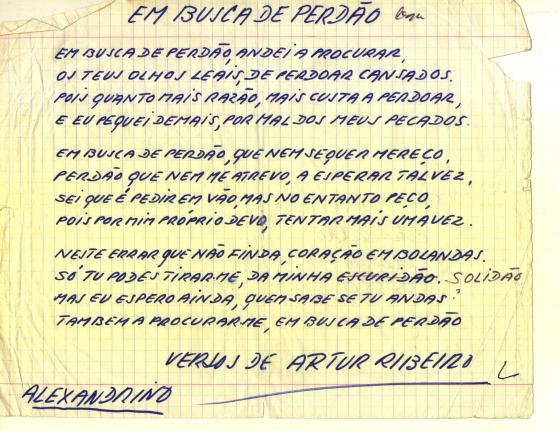 EM BUSCA DE PERDÃO
EM BUSCA DE PERDÃO, ANDEI A PROCURAR,
OS TEUS OLHOS LEAIS, DE PERDOAR CANSADOS.
POIS QUANTO MAIS RAZÃO, MAIS CUSTA A PERDOAR,
E EU PEQUEI DEMAIS, POR MAL DOS MEUS PECADOS.
EM BUSCA DE PERDÃO, QUE NEM SEQUER MEREÇO,
PERDÃO QUE NEM ME ATREVO, A ESPERAR TALVEZ,
SEI QUE É PEDIR EM VÃO, MAS NO ENTANTO PEÇO,
POIS POR MIM PRÓPRIO DEVO, TENTAR MAIS UMA VEZ.
NESTE ERRAR QUE NÃO FINDA, CORAÇÃO EM BOLANDAS.
SÓ TU PODES TIRAR-ME, DA MINHA ESCURIDÃO. SOLIDÃO
MAS EU ESPERO AINDA, QUEM SABE SE TU ANDAS?
TAMBEM A PROCURAR-ME, EM BUSCA DE PERDÃO
VERSOS DE ARTUR RIBEIRO
ALEXANDRINO